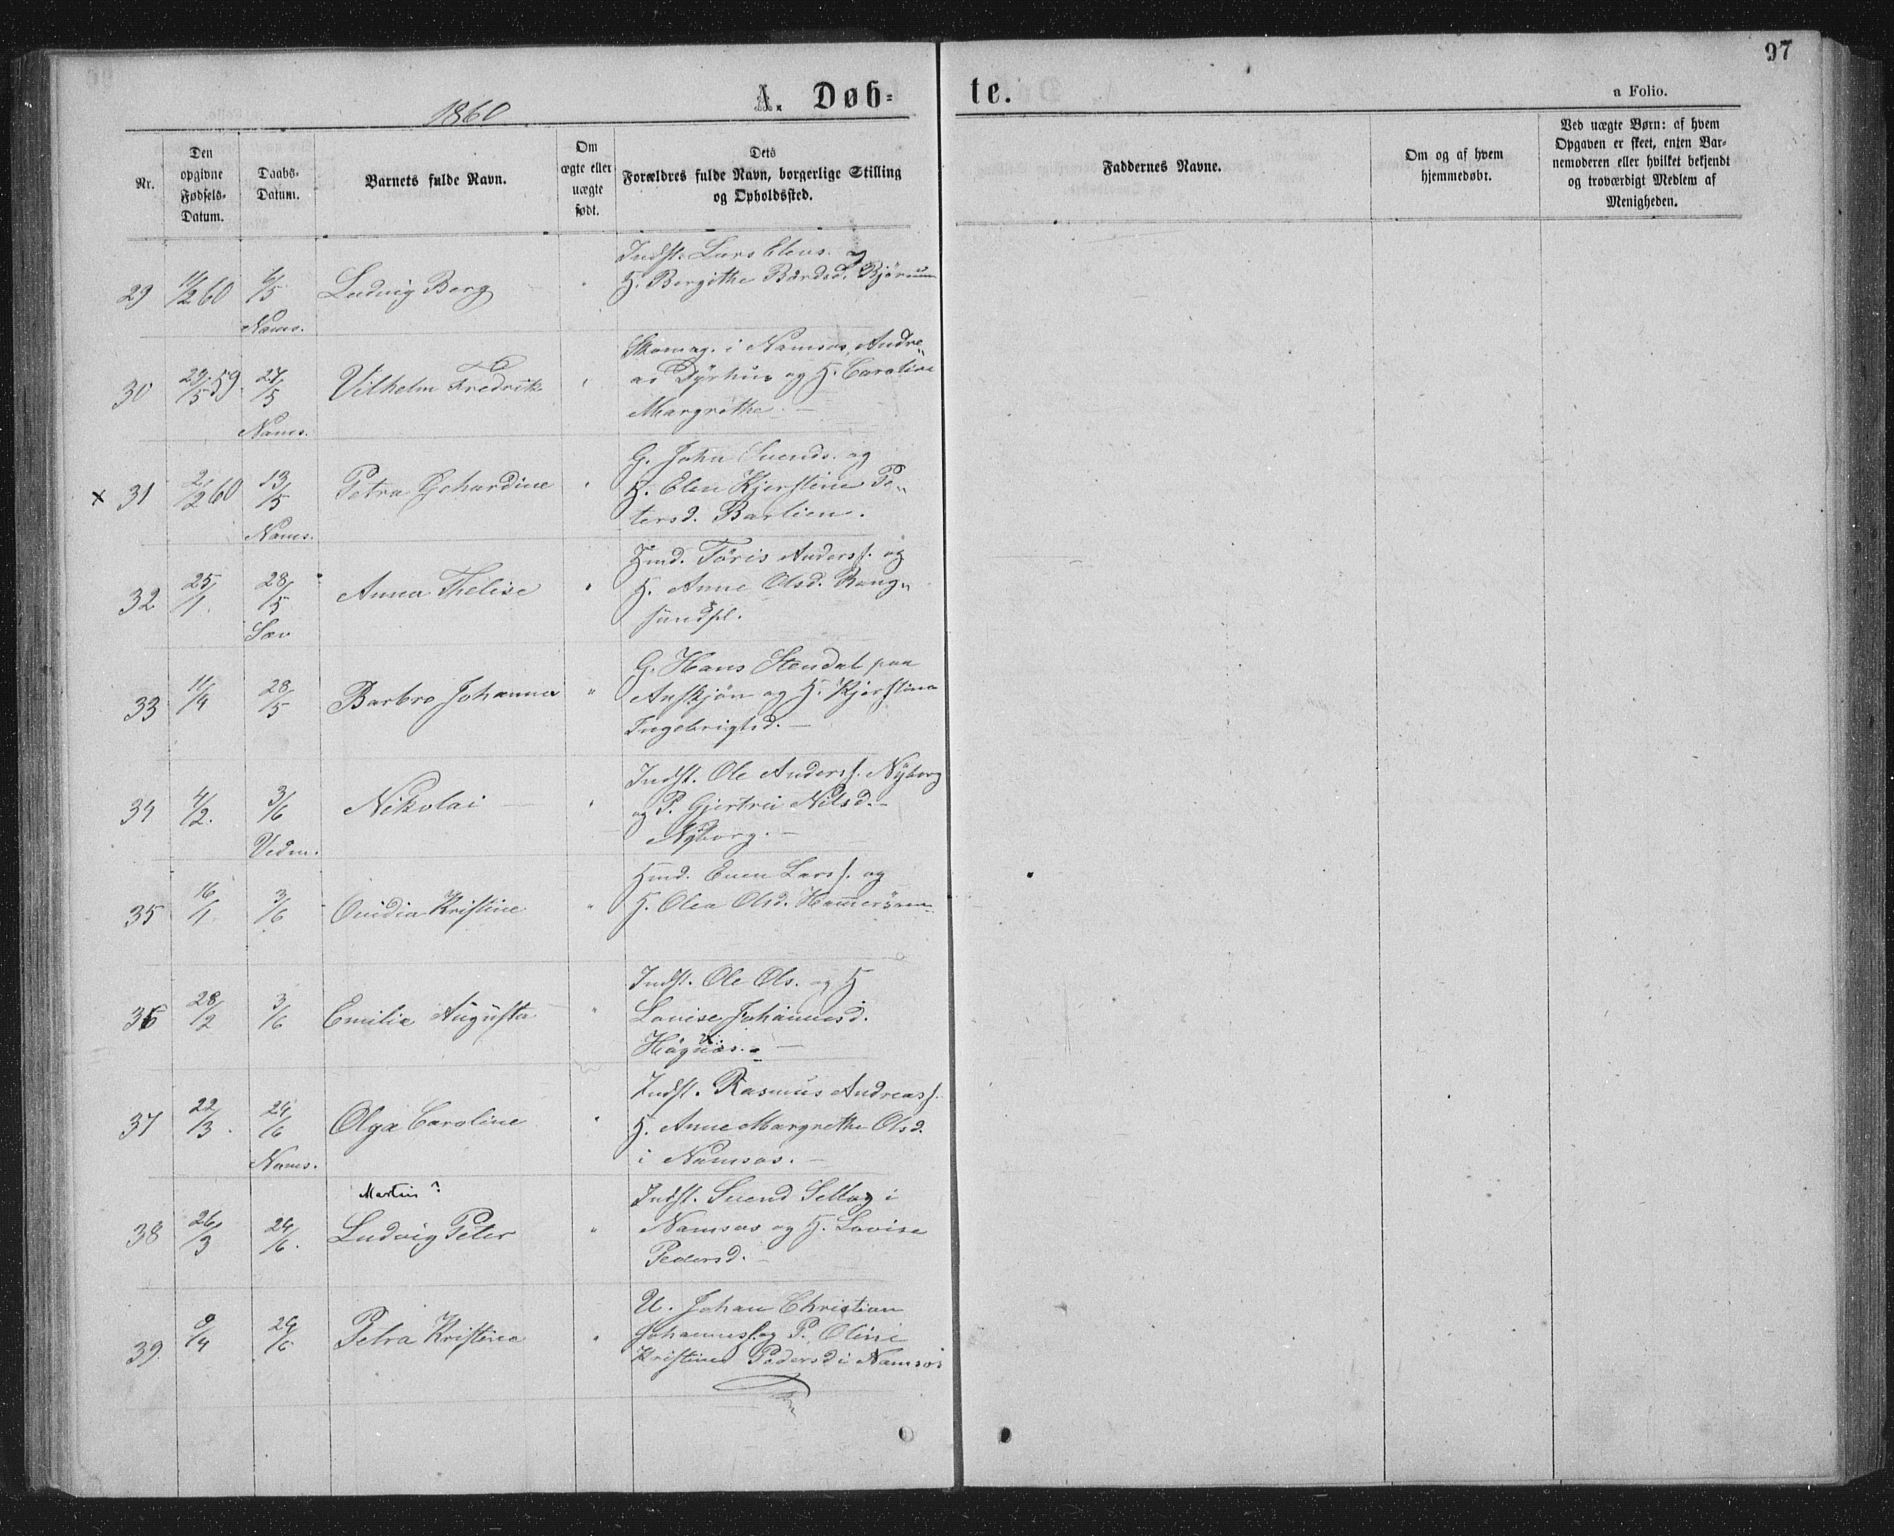 97
A. Døb- te.
a Folio.
1860
Nr.
Den opgivne Fødsels-Datum.
Daabs-Datum.
Barnets fulde Navn.
Om ægte eller uægte født.
Dets Forældres fulde Navn, borgerlige Stilling og Opholdssted.
Faddernes Navne.
Om og af hvem hjemmedøbt.
Ved uægte Børn: af hvem Opgaven er skeet, enten Barnemoderen eller hvilket bekjendt og troværdigt Medlem af Menigheden.
Indst. Lars Elens. og
29 11/2 60 6/5 Ludvig Berg " H. Bergithe Bårdsd. Bjørum
Nams.
Skomag. i Namsos, Andre„
30 29/5 59. 27/5 Vilhelm Fredrik " as Dÿrhus og H. Caroline
Nams. Margrethe. —
G. John Svends. og
x 31 2/2 60 13/5 Petra Gehardine " H. Elen Kjerstine Pe„
Nams. tersd. Barlien.
Hmd. Tøris Anderss. og
32 25/1. 28/5 Anna Thelise " H. Anne Olsd. Bang„
Sæv sundpl.
G. Hans Stendal paa
33 11/4 28/5 Barbro Johanna " Aafskjøn og H. Kjerstina
Ingebrigtsd. —
Indst. Ole Anderss. Nÿborg
34 4/2. 3/6 Nikolai — " og P. Gjertru Nilsd. -
Vedm. Nÿborg. —
Hmd. Even Larss. og
35 16/1. 3/6 Ovidia Kristine " H. Olea Olsd.
Indst. Ole Ols. og H
36 28/2 3/6 Emilie Augusta " Lovise Johannesd.
Høgnæs. —
Indst. Rasmus Andreass.
37 22/3. 24/6 Olga Caroline " H. Anne Margrethe Olsd.
Nams. i Namsos. —
Martin? Indst. Svend Sellæg i
38 26/3 24/6. Ludvig Peter " Namsos og H. Lovise
Pedersd. —
U. Johan Christian
39. 9/4 24/6 Petra Kristine " Johanness. og P. Oline
Kristine Pedersd i Namsos